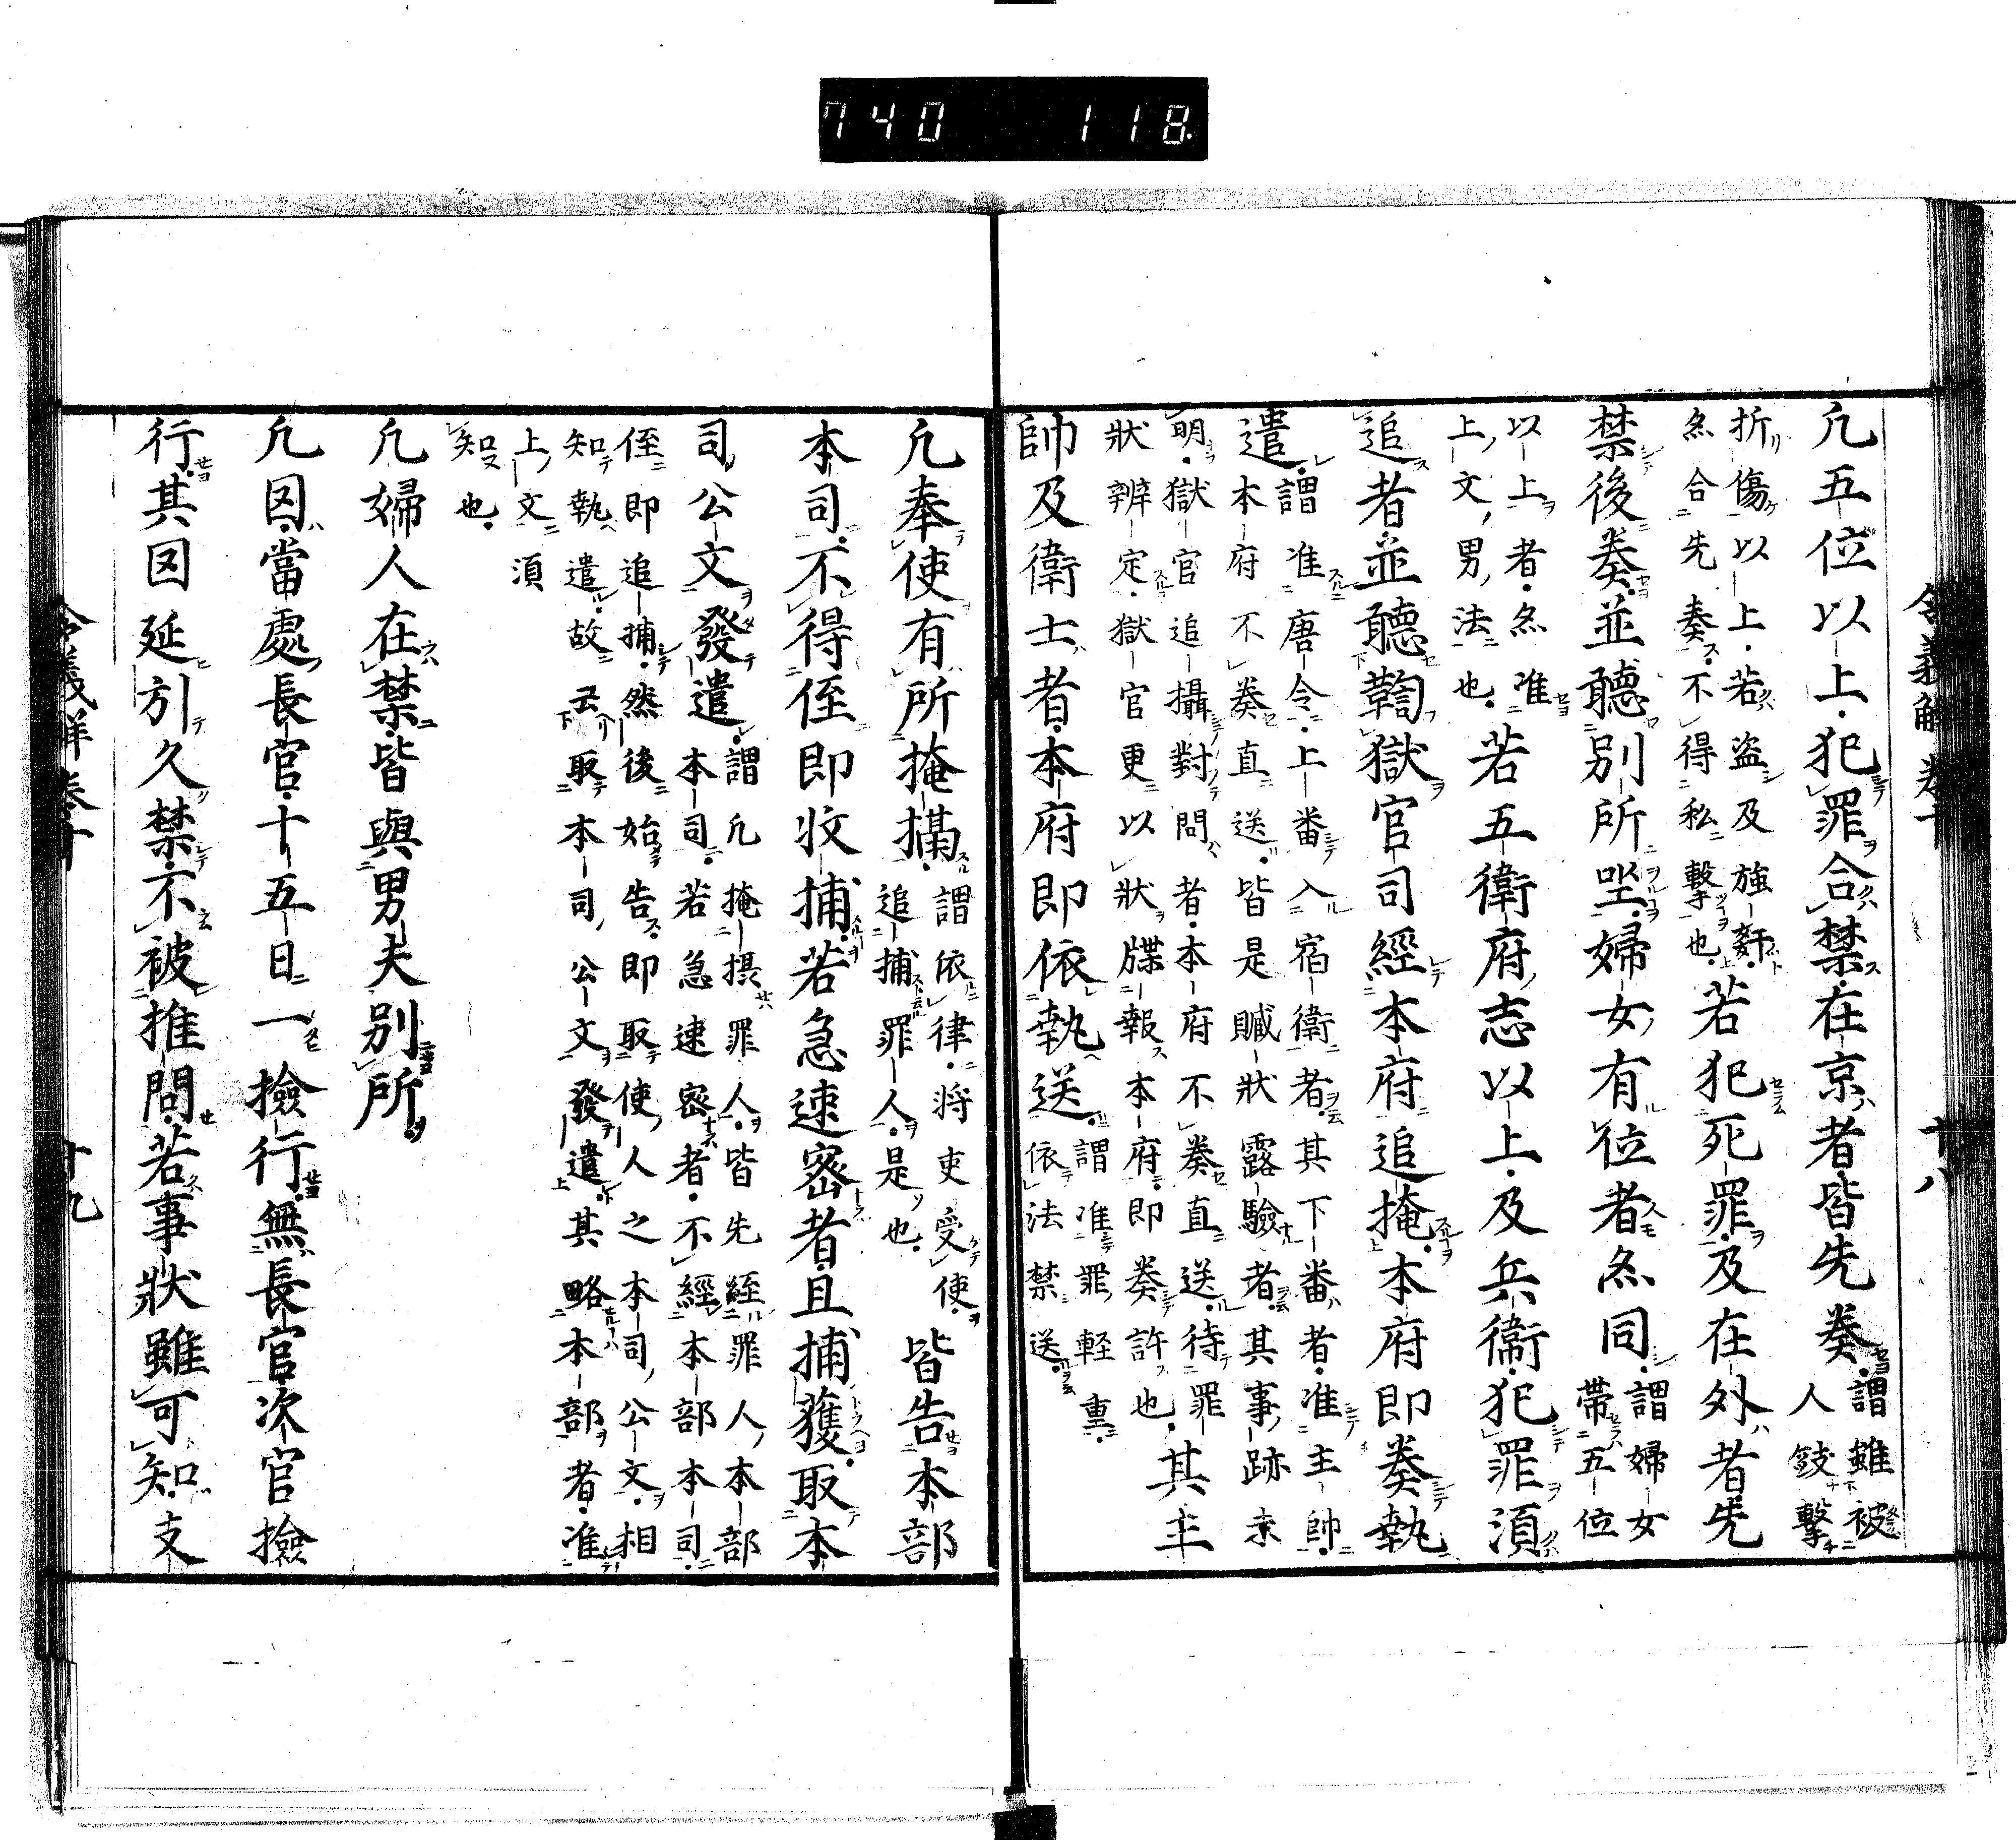 740 118
凢五位以上犯罪合禁在京者皆先奏謂雖被人㪇擊
折傷以上若盗及強姧𠅘合先奏不得私擊也若犯死罪及在外者先
禁後奏並聽別所坐婦女有位者𠅘同謂婦女帶五位
以上者𠅘准上文男法也若五衛府志以上及兵衛犯罪須
追者並聽鞫獄官司經本府追掩本府即奏執
遣謂准唐令上番入宿衛者其下番者准主帥本府不奏直送皆是贓狀露驗者其事跡未
明獄官追攝對問者本府不奏直送待罪狀辨定獄官更以狀牒報本府即奏許也其主
帥及衛士者本府即依執送謂准罪輕重依法禁送
凢奉使有所掩攝謂依律將吏受使追捕罪人是也皆告本部
本司不得侄即收捕若急速密者且捕獲取本
司公文發遣謂凢掩摂罪人皆先經罪人本部本司若急速密者不經本部本司
侄即追捕然後始告即取使人之本司公文相知執遣故云取本司公文發遣其略本部者准
上文須知也
凢婦人在禁皆與男夫別所
凢囚當處長官十五日一撿行無長官次官撿
行其囚延引久禁不被推問若事狀雖可知支